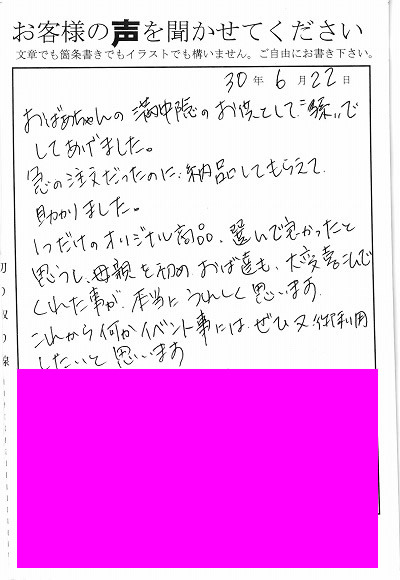 お客様の声を聞かせてください
文章でも箇条書きでもイラストでも構いません。ご自由にお書き下さい。
30年 6月 22日
おばあちゃんの満中陰のお供として"縁"で
してあげました。
急の注文だったのに、納品してもらえて
助かりました。
1つだけのオリジナル商品、選んで良かったと
思うし、母親を初め、おば達も、大変喜こんで
くれた事が、本当にうれしく思います。
これから何かイベント事には、ぜひ又、利用
したいと思います
切り取り線